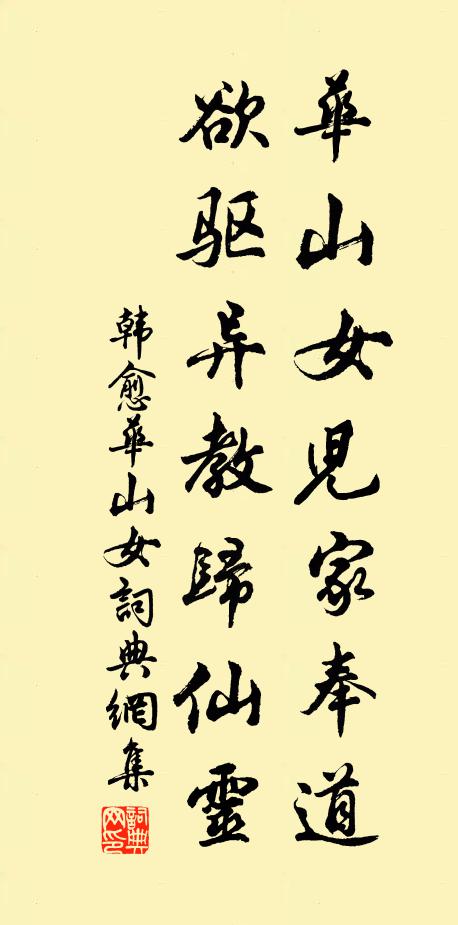 華山女児家奉道
欲驱异教歸仙靈
韩愈華山女詞典網集
詞典网印